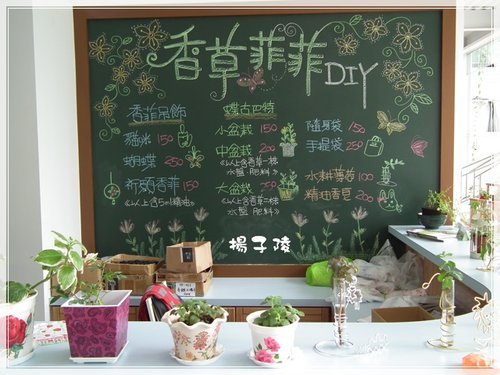 香草菲菲DIY
香菲吊飾
貓咪 150
蝴蝶 250
祈願香菲 150
《以上含5ml精油》
蝶古巴特
小盆栽 150
中盆栽 200
《以上含香草一棵
水盤、肥料》
大盆栽 250
《以上含香草二棵
水盤、肥料》
隨身袋 150
手提袋 250
水耕 100
精油香皂 200
揚子陵